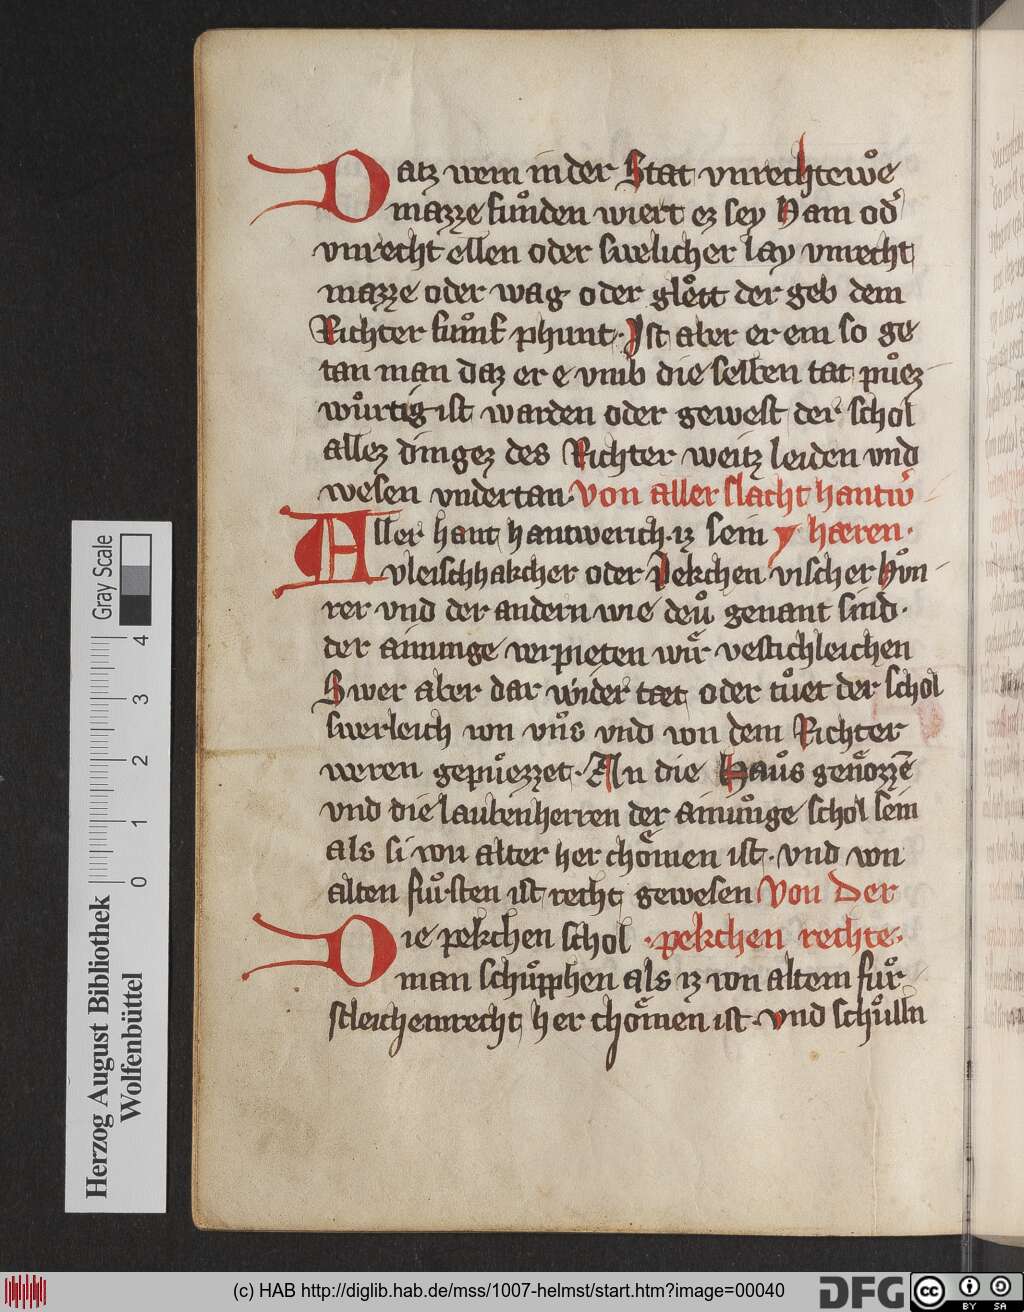 Datz wem in der Stat vnrechtew oͤ
mazze funͦden wiert ez sey Ham od'
vnrecht ellen oder swelicher lay vnrecht
mazze oder wag oder gloͤtt der geb dem
Richter fumͦf phunt · Ist aber er em so ge
tan man daz er e vmb die selben tat puͤez
wuͦrtig ist warden oder gewest der schol
allez dingez des Richter weitz leiden vnd
wesen vndertan · Von aller slacht hantw
Aller hant hantwerich · iz sein y hæren ·
vleischhakcher oder Pekchen vischer Huͦn
rer vnd der andern wie deuͦ genant sind ·
der ainunge verpieten wir vestichleichen
Swer aber dar wider tæt oder tuͦet der schol
swerleich von vnͦs vnd von dem Richter
weren gepuͤezzet · An die Hauͦs genoͤzzē
vnd die laubenherren der ainunͦge schol sein
als si von alter her choͤmen ist · vnd von
alten fuͦrsten ist recht gewesen Von Der
Die pekchen schol · pekchen rechte ·
man schuͦpphen als iz von altem fuͦr
stleichem recht her choͤmen ist · vnd schuͦlln
Gray Scale
0 1 2 3 4
Herzog August Bibliothek
Wolfenbüttel
(c) HAB http://diglib.hab.de/mss/1007-helmst/start.htm?image=00040
DFG
cc
BY SA